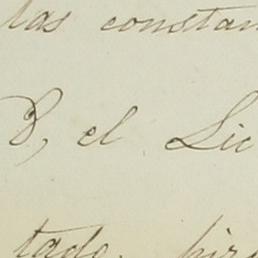 las constan
B, el Lic
tado.